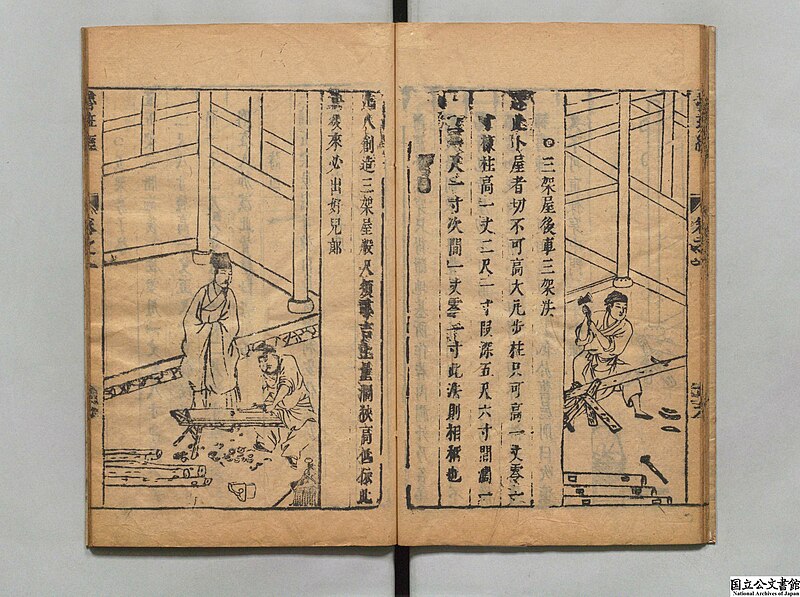 ○三架屋後車三架法
造此小屋者切不可高大凡步柱只可高一丈零一
寸棟柱高一丈二尺一寸段深五尺六寸間濶一
尺一寸次間一丈零一寸此法則相稱也
凡人創造三架屋般尺須尋吉上量濶狹高低依此
法後來必出好兒郎
魯班經
卷之一
国立公文書館
National Archives of Japan